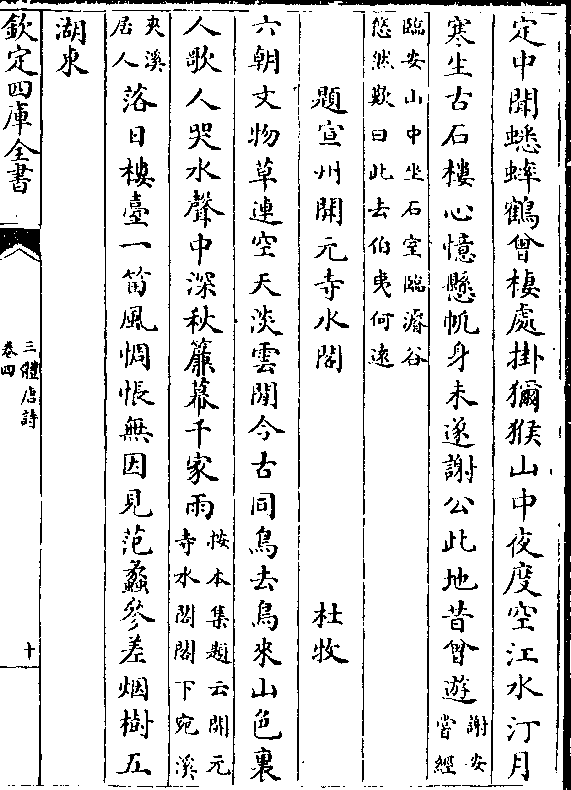 定中聞蟋蟀鶴曾棲處掛獼猴山中夜度空江水汀月
寒生古石樓心憶懸帆身未遂謝公此地昔曾遊謝安嘗經
臨安山中坐石室臨濬谷
悠然歎曰此去伯夷何遠
題宣州開元寺水閣 杜牧
六朝文物草連空天淡雲閒今古同鳥去鳥來山色裏
人歌人哭水聲中深秋簾幕千家雨按本集題云開元寺水閣閣下宛溪
夾溪居人落日樓臺一笛風惆悵無因見范蠡參差烟樹五
湖東
欽定四庫全書
三體唐詩
卷四
十